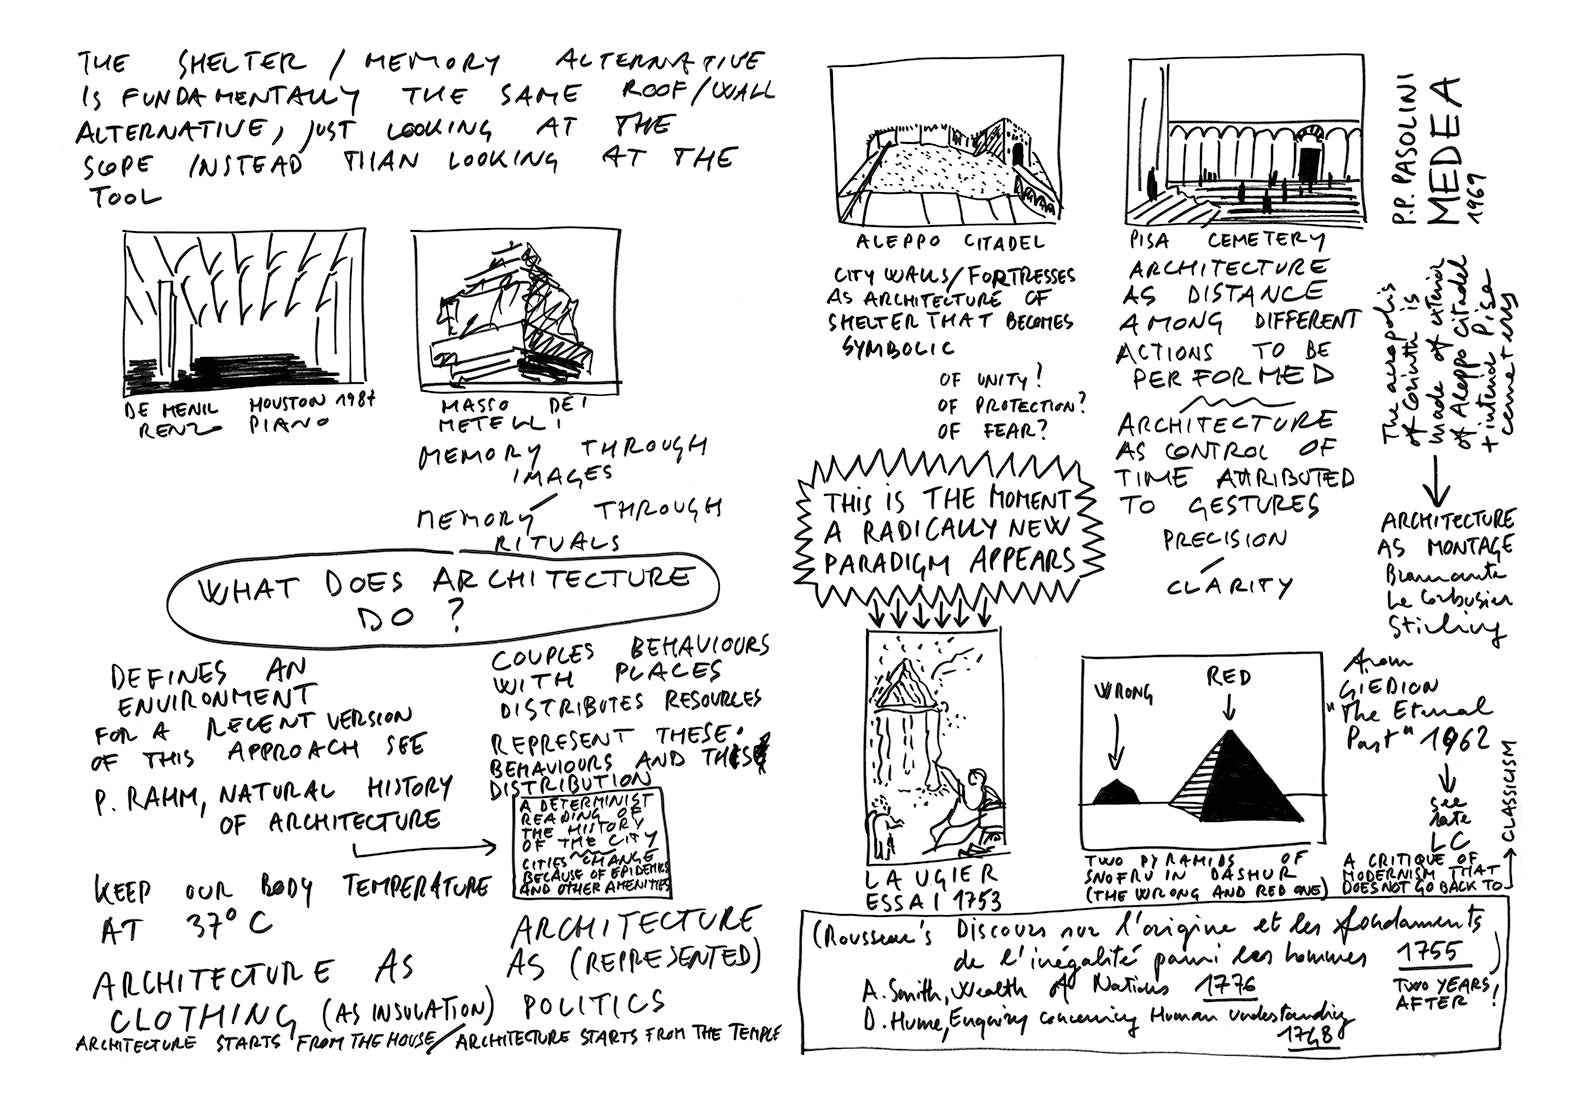 THE SHELTER / MEMORY ALTERNATIVE
IS FUNDAMENTALLY THE SAME ROOF/WALL
ALTERNATIVE, JUST LOOKING AT THE
SCOPE INSTEAD THAN LOOKING AT THE
TOOL
DE MENIL HOUSTON 1987
RENZO PIANO
MASSO DEI
METELLI
MEMORY THROUGH
IMAGES
/
MEMORY THROUGH
RITUALS
WHAT DOES ARCHITECTURE
DO ?
DEFINES AN
ENVIRONMENT
FOR A RECENT VERSION
OF THIS APPROACH SEE
P. RAHM, NATURAL HISTORY
OF ARCHITECTURE
KEEP OUR BODY TEMPERATURE
AT 37° C
ARCHITECTURE AS
CLOTHING (AS INSULATION)
COUPLES BEHAVIOURS
WITH PLACES
DISTRIBUTES RESOURCES
REPRESENT THESE
BEHAVIOURS AND THESE
DISTRIBUTION
A DETERMINIST
READING OF
THE HISTORY
OF THE CITY
CITIES CHANGE
BECAUSE OF EPIDEMICS
AND OTHER AMENITIES
ARCHITECTURE
AS (REPRESENTED)
POLITICS
ARCHITECTURE STARTS FROM THE HOUSE/ARCHITECTURE STARTS FROM THE TEMPLE
ALEPPO CITADEL
CITY WALLS/FORTRESSES
AS ARCHITECTURE OF
SHELTER THAT BECOMES
SYMBOLIC
OF UNITY?
OF PROTECTION?
OF FEAR?
THIS IS THE MOMENT
A RADICALLY NEW
PARADIGM APPEARS
LAUGIER
ESSAI 1753
PISA CEMETERY
ARCHITECTURE
AS DISTANCE
AMONG DIFFERENT
ACTIONS TO BE
PERFORMED
ARCHITECTURE
AS CONTROL OF
TIME ATTRIBUTED
TO GESTURES
PRECISION
/
CLARITY
P.P. PASOLINI
MEDEA
1969
The acropolis
of Corinth is
made of exterior
of Aleppo Citadel
+ interior Pisa
cemetery
ARCHITECTURE
AS MONTAGE
Bramante
Le Corbusier
Stirling
WRONG
RED
TWO PYRAMIDS OF
SNOFRU IN DASHUR
(THE WRONG AND RED ONE)
from
GIEDION
"The Eternal
Past" 1962
see
late
LC
A CRITIQUE OF
MODERNISM THAT
DOES NOT GO BACK TO
CLASSICISM
(Rousseau's Discours sur l'origine et les fondaments
de l'inégalité parmi les hommes 1755)
TWO YEARS
AFTER!
A. Smith, Wealth of Nations 1776
D. Hume, Enquiry concerning Human Understanding
1748